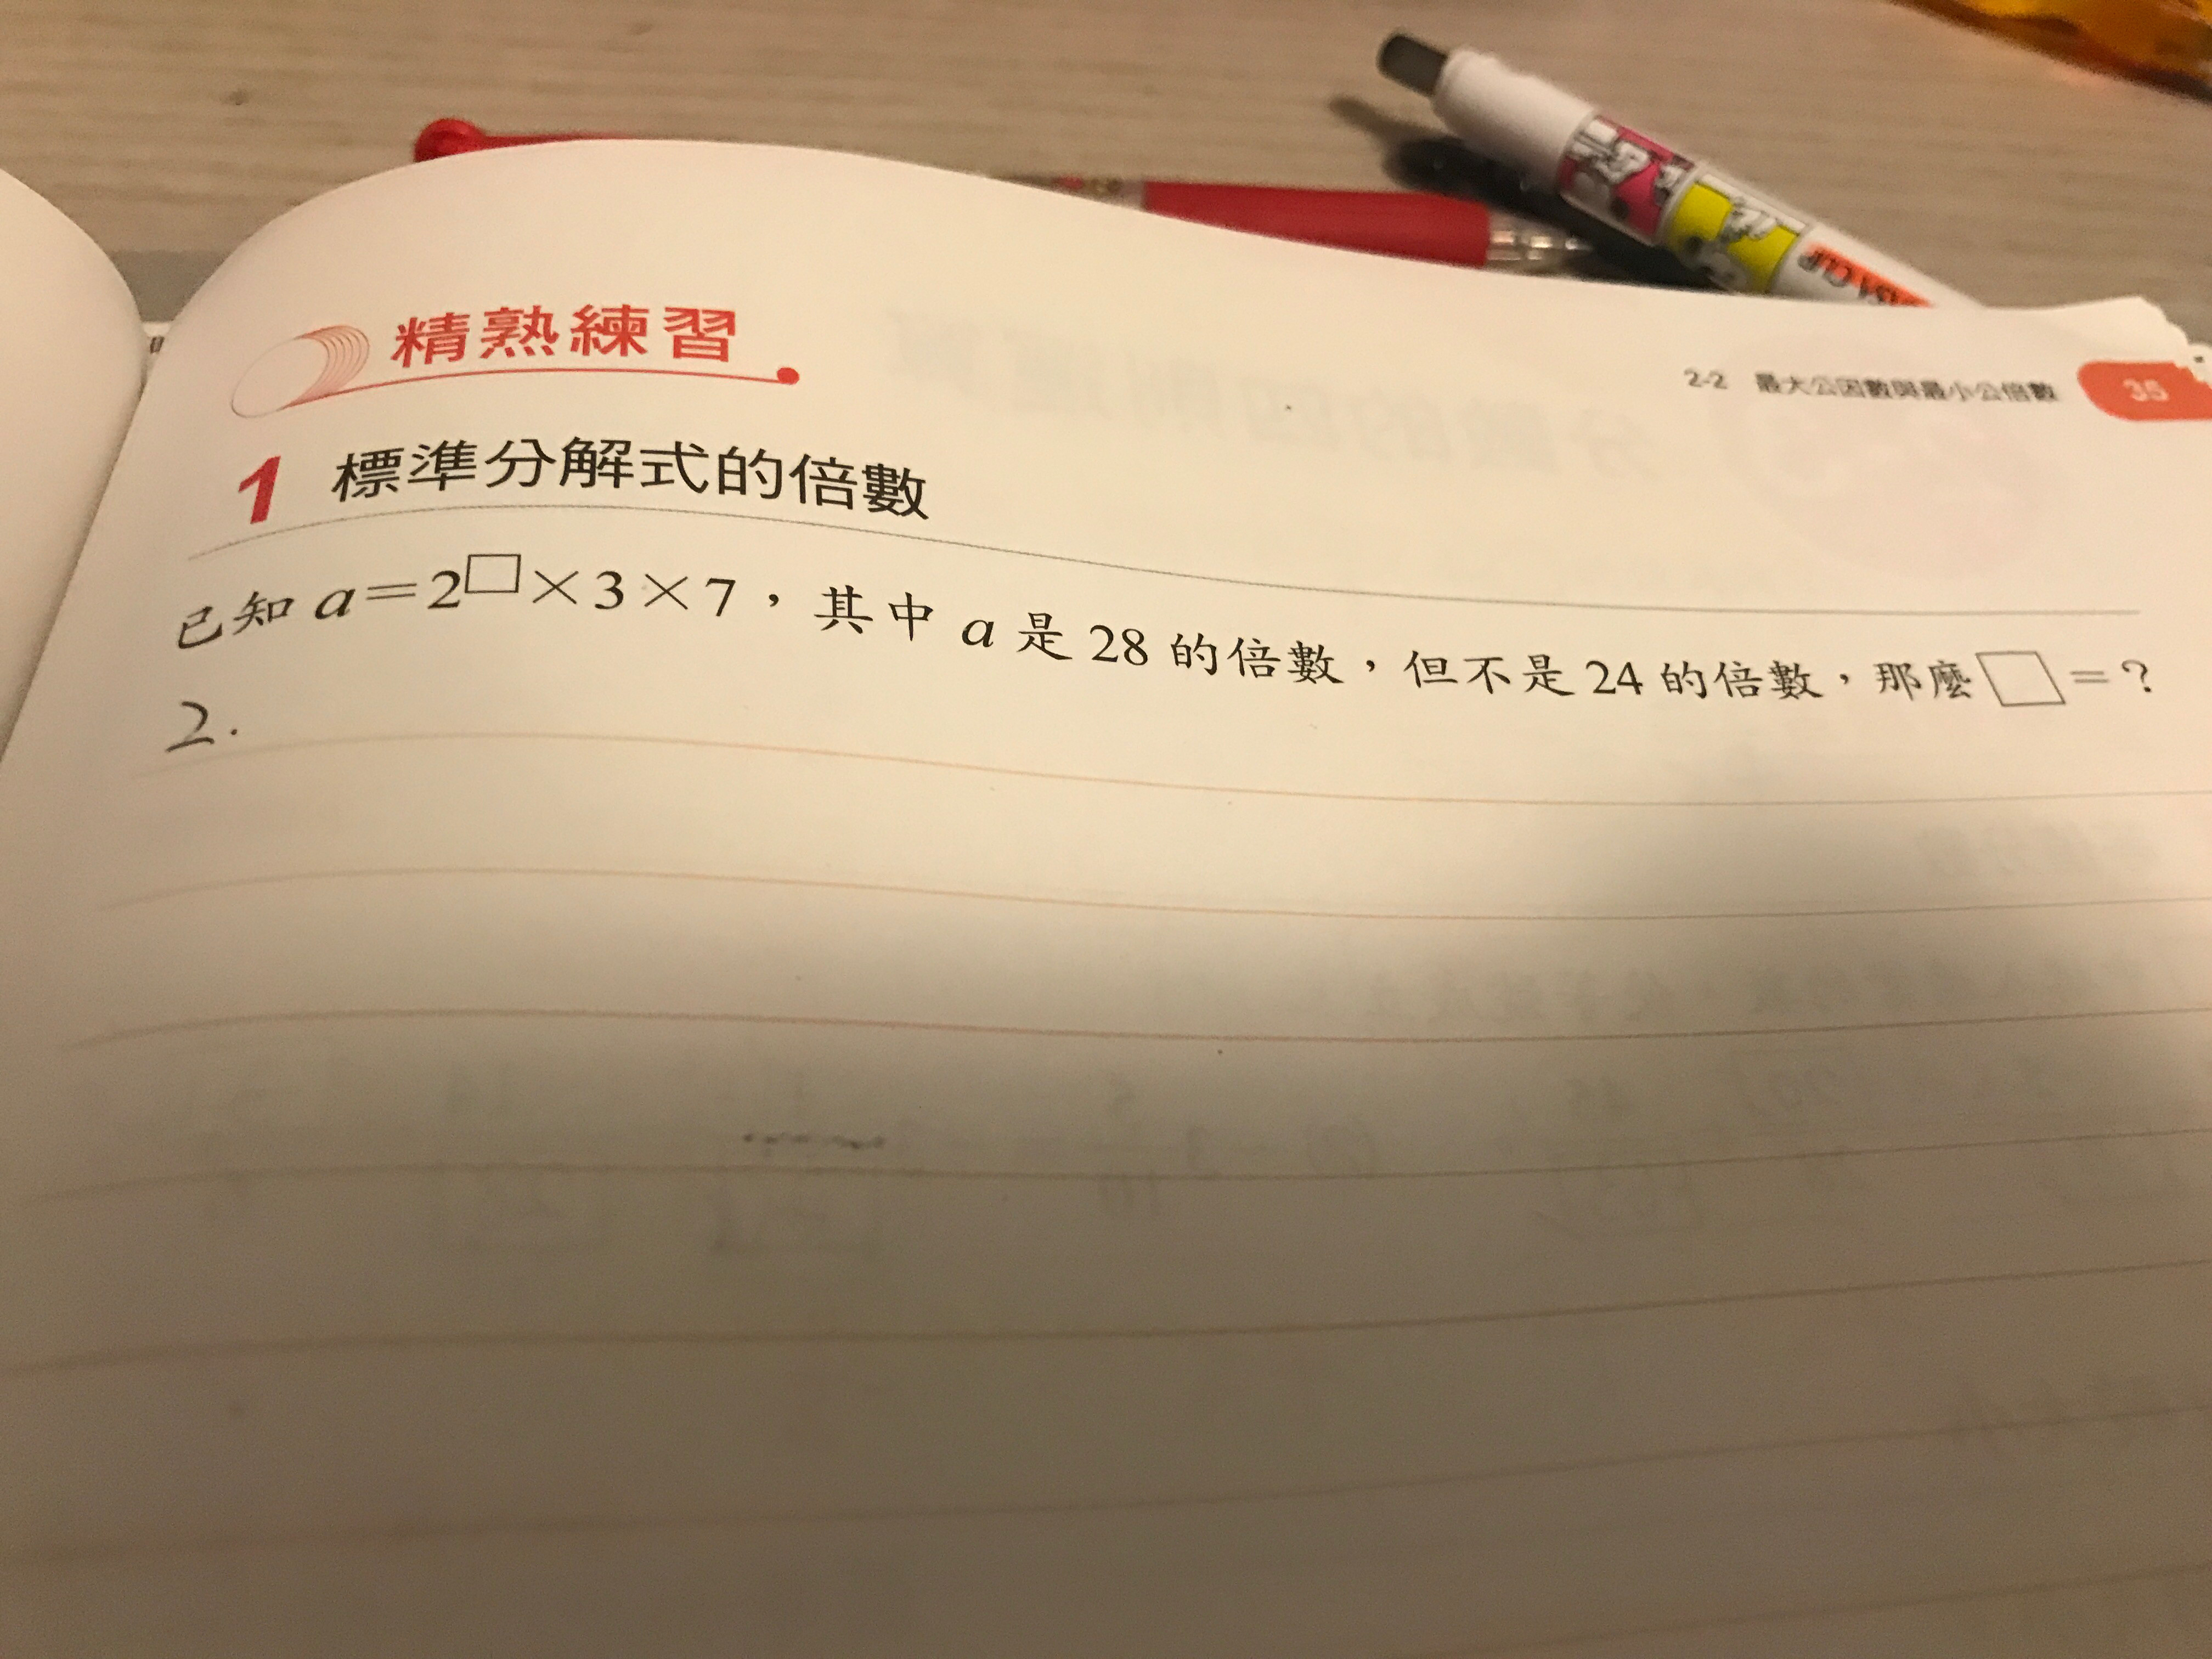 精熟練習
2-2 最大公因數與最小公倍數 35
1 標準分解式的倍數
已知 a=2□×3×7，其中 a 是 28 的倍數，但不是 24 的倍數，那麼□=？
2.